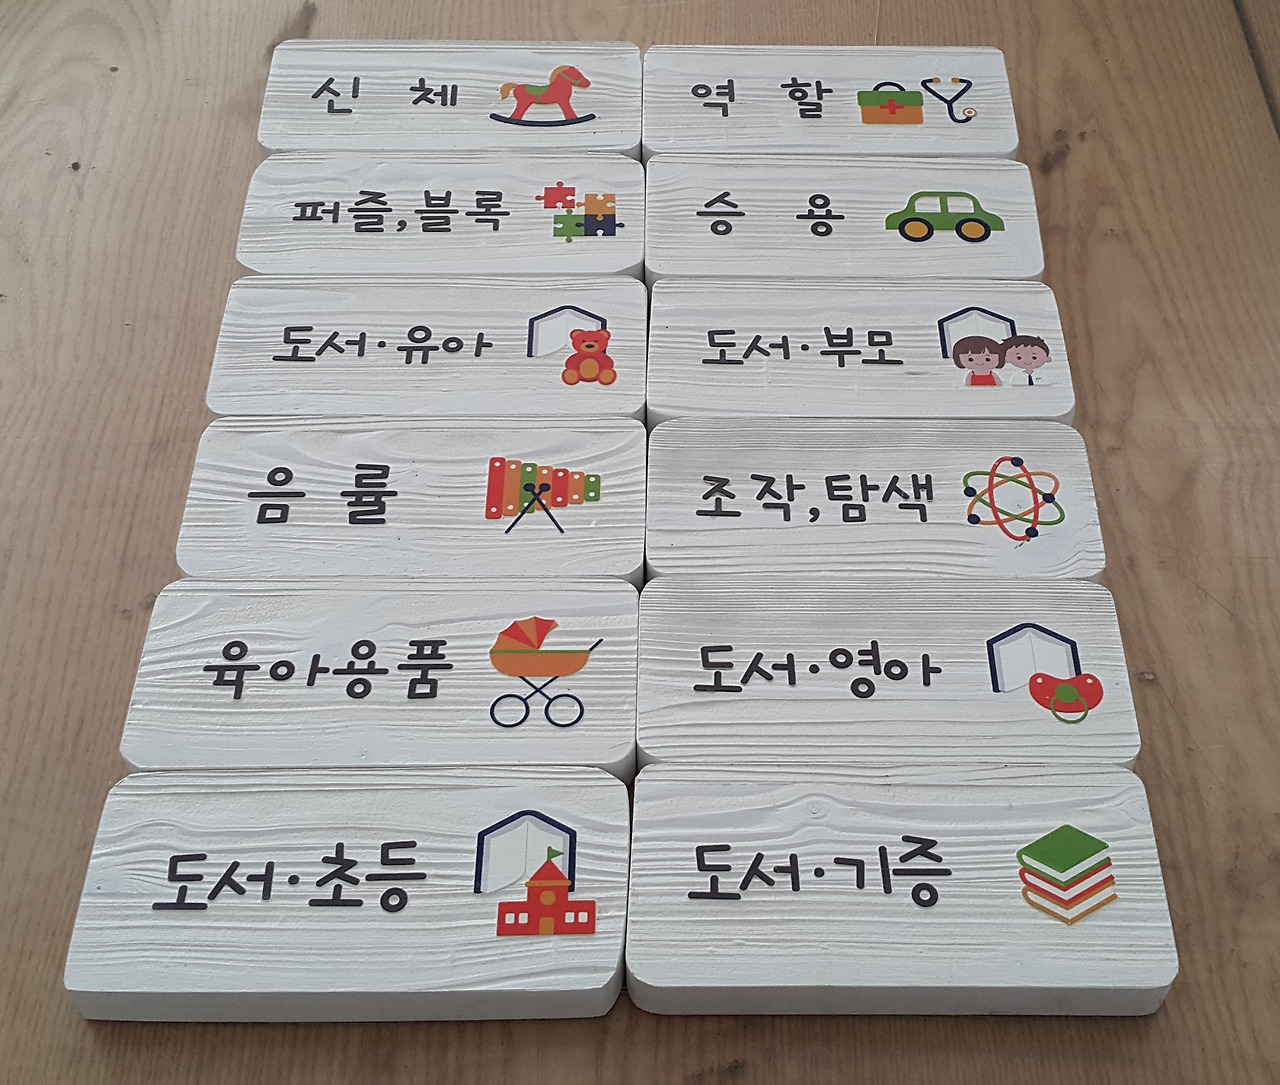 신 체
역 할
퍼즐,블록
승 용
도서·유아
도서·부모
음 률
조작,탐색
육아용품
도서·영아
도서·초등
도서·기증